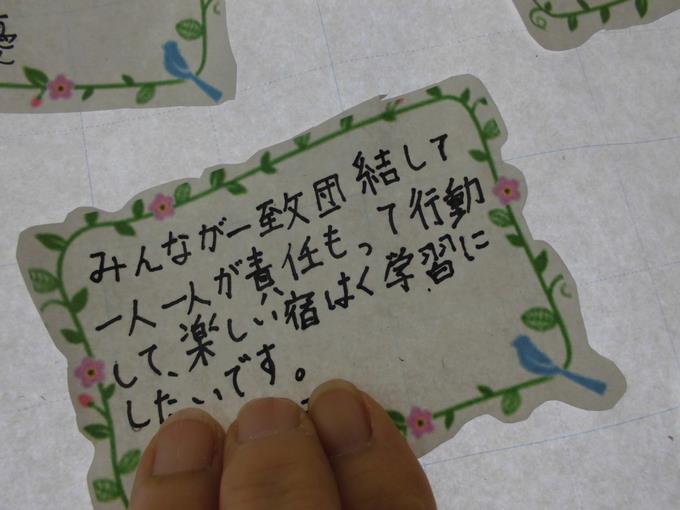 みんなが一致団結して
一人一人が責任もって行動
して、楽しい宿はく学習に
したいです。